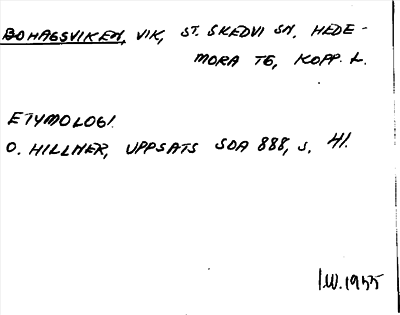 BOHAGSVIKEN, VIK, ST. SKEDVI SN. HEDE-
MORA TG, KOPP. L.
ETYMOLOGI.
O. HILLNER, UPPSATS SOA 888, S. 41.
I.W. 1955